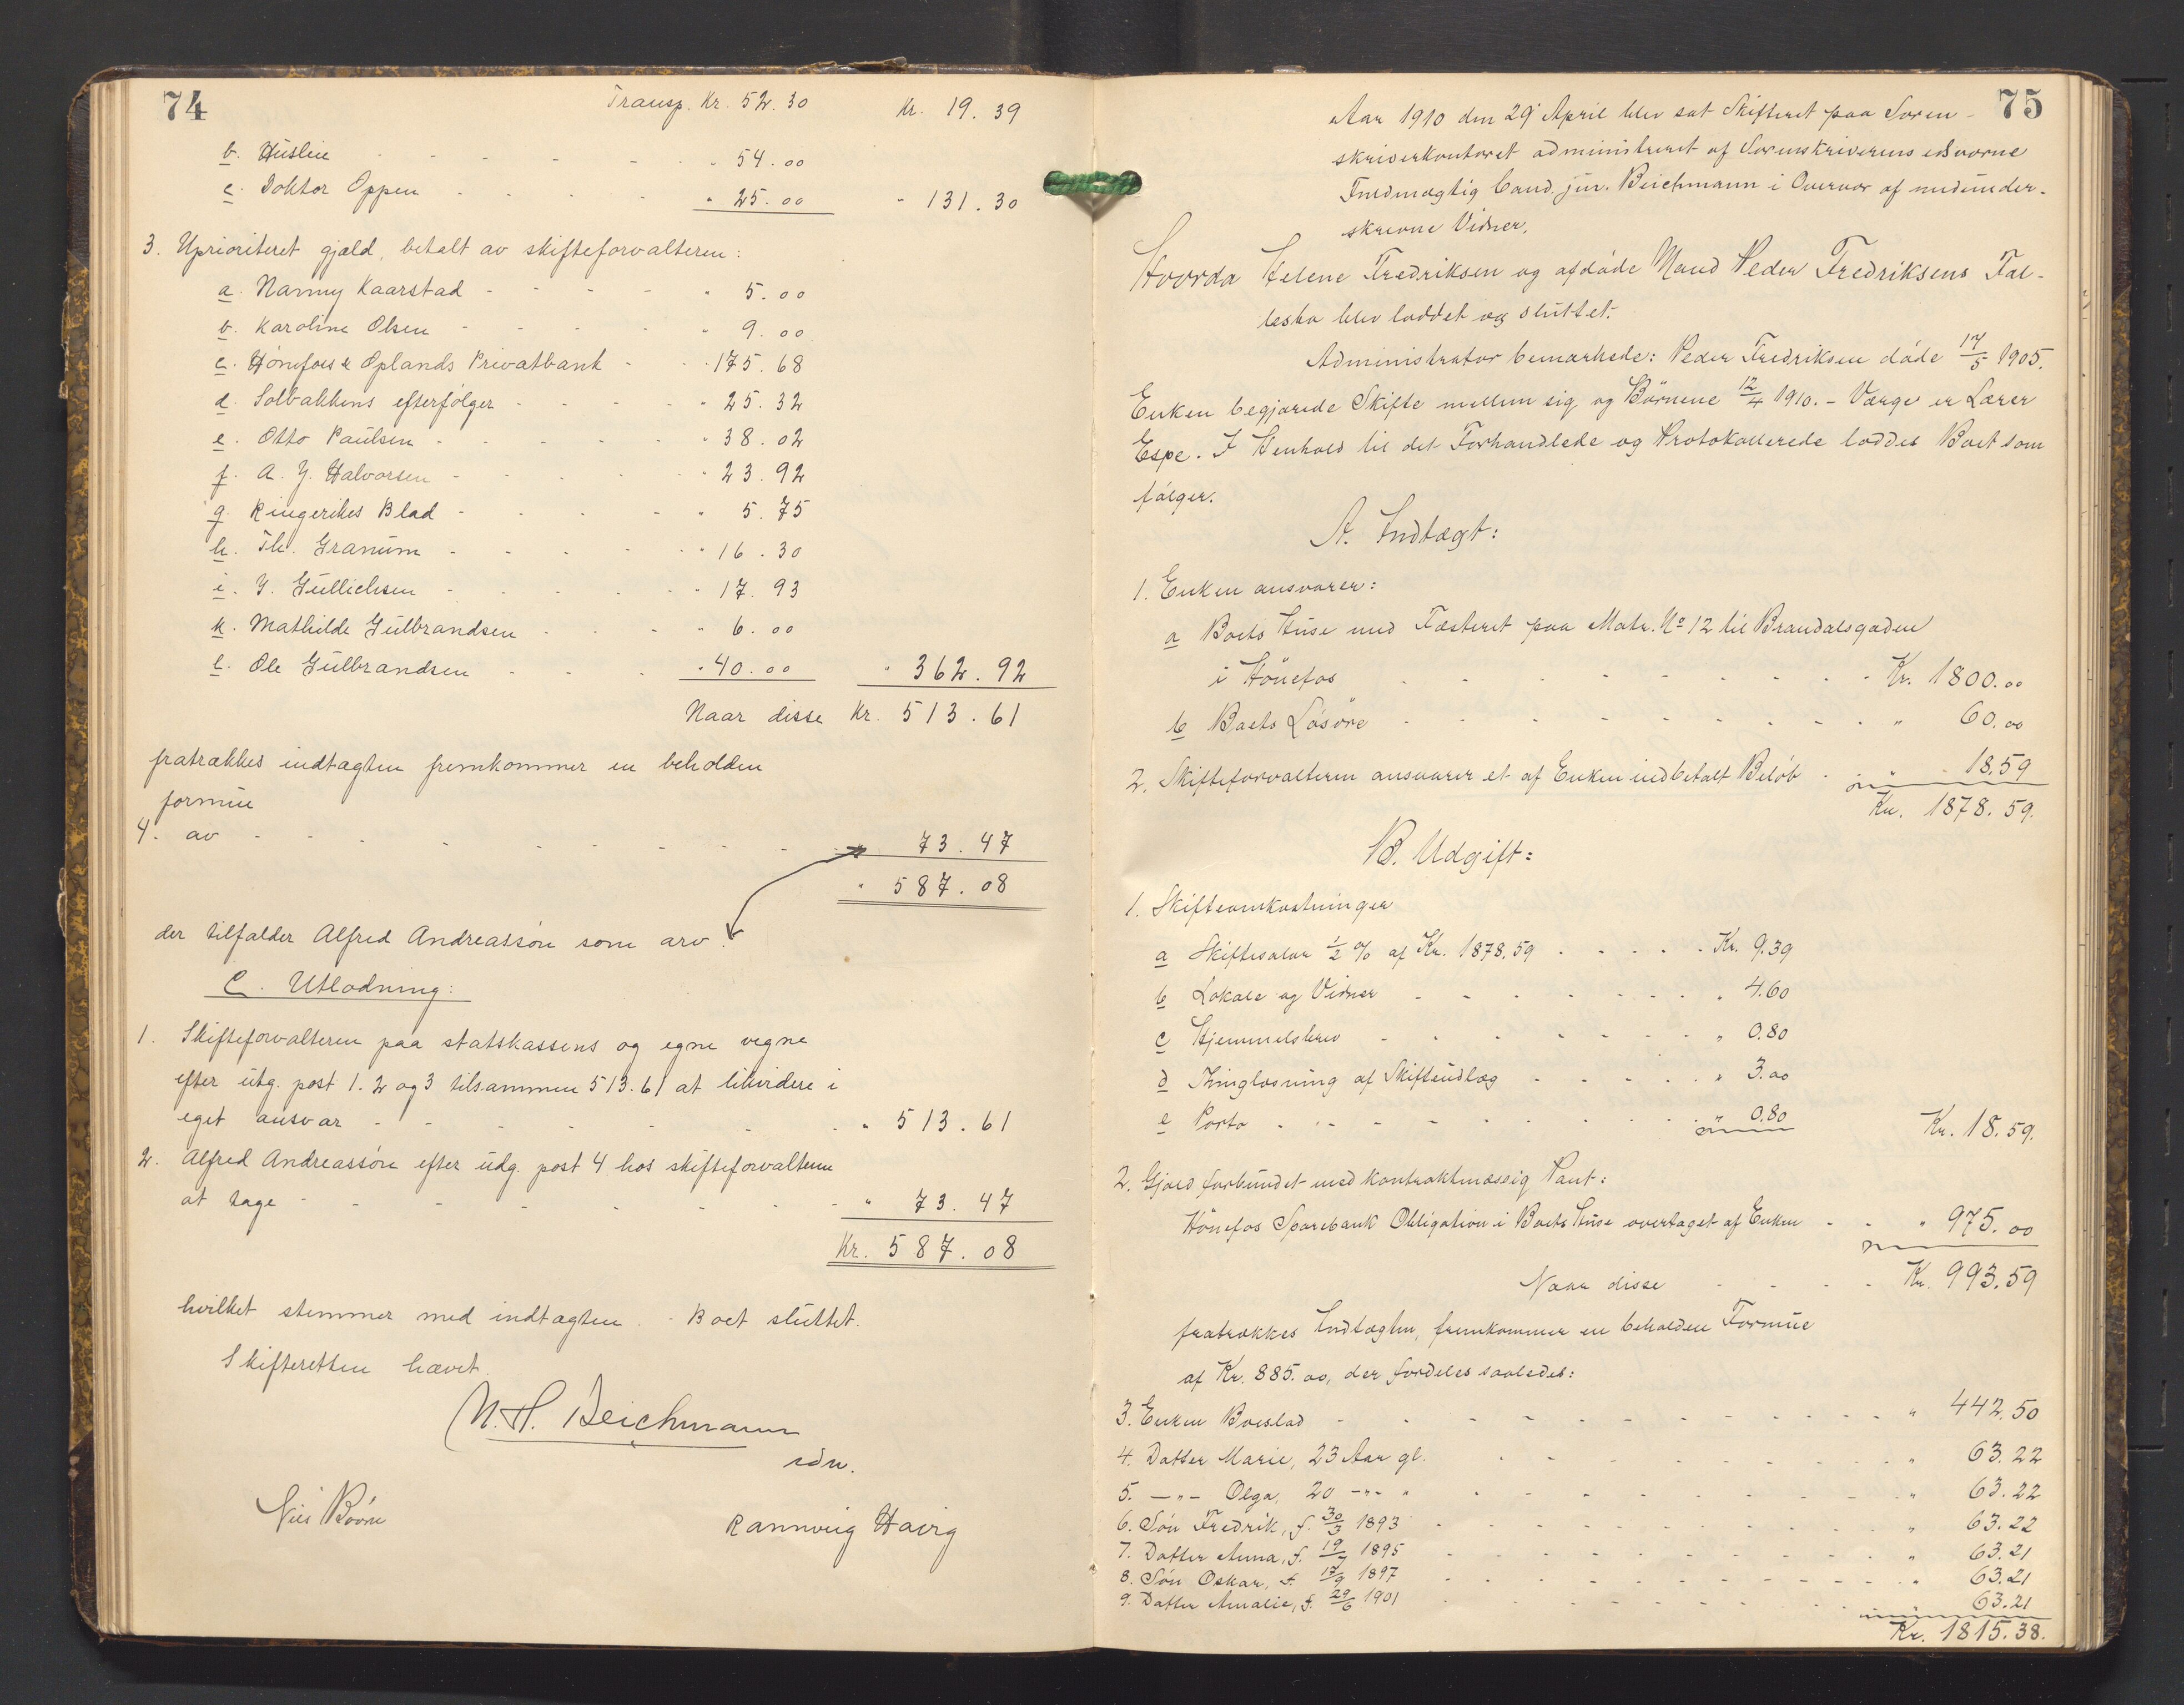 74
Transp. Kr. 52.30 Kr. 19.39
b. Husleie - - - - - " 54.00
c. Doktor Oppen - - - - " 25.00 " 131.30
3. Uprioriteret gjæld, betalt av skifteforvalteren:
a. Nanny Kaarstad - - - - " 5.00
b. Karoline Olsen - - - - " 9.00
c. Hönefoss & Oplands Privatbank - - " 175.68
d. Solbakkens efterfölger - - - - " 25.32
e. Otto Paulsen - - - - - " 38.02
f. A. J. Halvorsen - - - - " 23.92
g. Ringerikes Blad - - - - " 5.75
h. Th. Granum - - - - - " 16.30
i. J. Gullichsen - - - - - " 17.93
k. Mathilde Gulbrandsen - - - " 6.00
l. Ole Gulbrandsen - - - " 40.00 " 362.92
Naar disse Kr. 513.61
fratrækkes indtægten fremkommer en beholden
formue
4. av - - - - - - - - " 73.47
" 587.08
der tilfalder Alfred Andreassön som arv.
C. Utlodning:
1. Skifteforvalteren paa statskassens og egne vegne
efter utg. post 1. 2 og 3 tilsammen 513.61 at likvidere i
eget ansvar - - - - - - " 513.61
2. Alfred Andreassön efter udg. post 4 hos skifteforvalteren
at tage - - - - - - " 73.47
Kr. 587.08
hvilket stemmer med indtægten. - Boet sluttet.
Skifteretten hævet.
N. H. Beichmann
edv.
Rannveig Havig
75
Aar 1910 den 29 April blev sat Skifteret paa Soren-
skriverkontoret administreret af Sorenskriverens edsvorne
Fuldmægtig Cand. jur. Beichmann i Overvær af nedunder-
skrevne Vidner,
Hvorda Helene Fredriksen og afdöde Mand Peder Fredriksens Fæl-
lesbo blev loddet og sluttet.
Administrator bemærkede: Peder Fredriksen döde 17/5 1905.
Enken begjærede Skifte mellem sig og Börnene 12/4 1910. - Værge er Lærer
Espe. I Henhold til det Forhandlede og Protokollerede loddes Boet som
fölger.
A. Indtægt:
1. Enken ansvarer:
a Boets Huse med Fæsteret paa Matr. No 12 til Brandalsgaden
i Hönefos - - - - - - - - Kr. 1800.00
b Boets Lösöre - - - - - - - - " 60.00
2. Skifteforvalteren ansvarer et af Enken indbetalt Belöb - - " - 18.59
Kr. 1878.59.
B. Udgift:
1. Skifteomkostninger
a Skiftesalær 1/2 % af Kr. 1878.59 - - - - - Kr. 9.39
b Lokale og Vidner - - - - - - - " 4.60
c Hjemmelsbrev - - - - - - - " 0.80
d Thinglæsning af Skifteudlæg - - - - - " 3.00
e Porto - - - - - - - - - " 0.80 Kr. 18.59.
2. Gjæld forbundet med kontraktmæssig Pant:
Hönefos Sparebank Obligation i Boets Huse overtaget af Enken - - " 975.00
Naar disse - - - - Kr. 993.59
fratrækkes Indtægten, fremkommer en beholden Formue
af Kr. 885.00, der fordeles saaledes:
3. Enken Boeslod - - - - - - - - - - " 442.50
4. Datter Marie, 23 Aar gl. - - - - - - - - " 63.22
5. -"- Olga, 20 -"- " - - - - - - - - " 63.22
6. Sön Fredrik, f. 30/3 1893 - - - - - - - - " 63.22
7. Datter Anna, f. 19/7 1895 - - - - - - - - " 63.21
8. Sön Oskar, f. 17/9 1897 - - - - - - - - " 63.21
9. Datter Amalie, f. 29/6 1901 - - - - - - - 63.21
Kr. 1815.38.